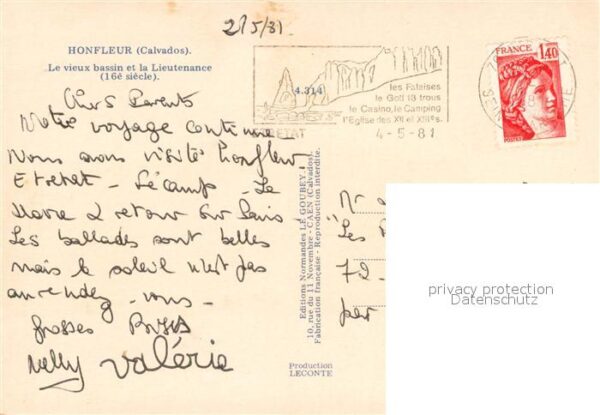 2/5/81
HONFLEUR (Calvados).
Le vieux bassin et la Lieutenance
(16è siècle).
4.314
les Falaises
le Golf 18 trous
le Casino, le Camping
l'Eglise des XII et XIIIes.
ETRETAT
4-5-81
FRANCE
1,40
POSTES
Chers Parents
Notre voyage continue
Nous avons visité honfleur
Etretat - Fécamp - Le
Havre & retour sur Paris -
Les ballades sont belles
mais le soleil n'est pas
au rendez-vous -
grosses Bises
Nelly Valérie
Editions Normandes LE GOUBEY
10, rue du 11 Novembre - CAEN (Calvados)
Fabrication française - Reproduction interdite.
Production
LECONTE
"Les
72-
par
privacy protection
Datenschutz